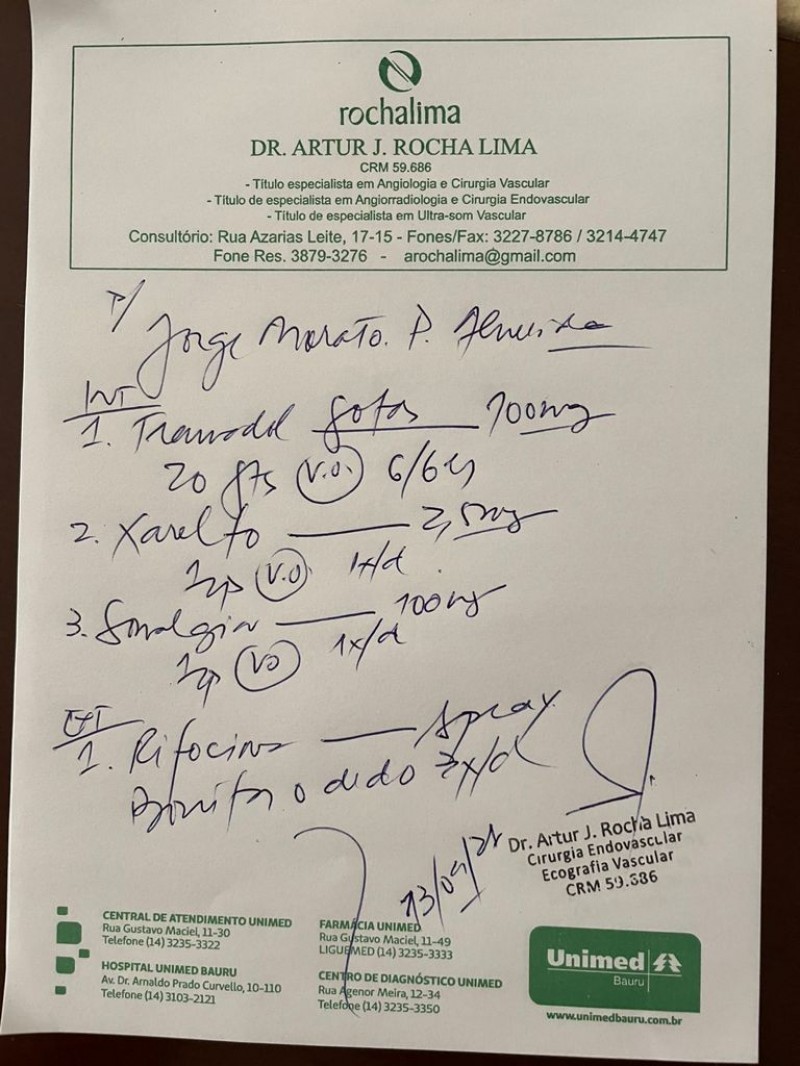 rochalima
DR. ARTUR J. ROCHA LIMA
CRM 59.686
- Título especialista em Angiologia e Cirurgia Vascular
- Título de especialista em Angiorradiologia e Cirurgia Endovascular
- Título de especialista em Ultra-som Vascular
Consultório: Rua Azarias Leite, 17-15 - Fones/Fax: 3227-8786 / 3214-4747
Fone Res. 3879-3276 - arochalima@gmail.com
P/
Jorge Morato. P. Almeida
INT
1. Tramadol gotas 100mg
20 gts (V.O.) 6/6h
2. Xarelto 2,5mg
1cp (V.O) 1x/d.
3. Somalgin 100mg
1cp (VO) 1x/d
EXT
1. Rifocina Spray
Borrifar o dedo x/d
Dr. Artur J. Rocha Lima
Cirurgia Endovascular
Ecografia Vascular
CRM 59.686
CENTRAL DE ATENDIMENTO UNIMED
Rua Gustavo Maciel, 11-30
Telefone (14) 3235-3322
HOSPITAL UNIMED BAURU
Av. Dr. Arnaldo Prado Curvello, 10-110
Telefone (14) 3103-2121
FARMÁCIA UNIMED
Rua Gustavo Maciel, 11-49
LIGUEMED (14) 3235-3333
CENTRO DE DIAGNÓSTICO UNIMED
Rua Agenor Meira, 12-34
Telefone (14) 3235-3350
Unimed
Bauru
www.unimedbauru.com.br